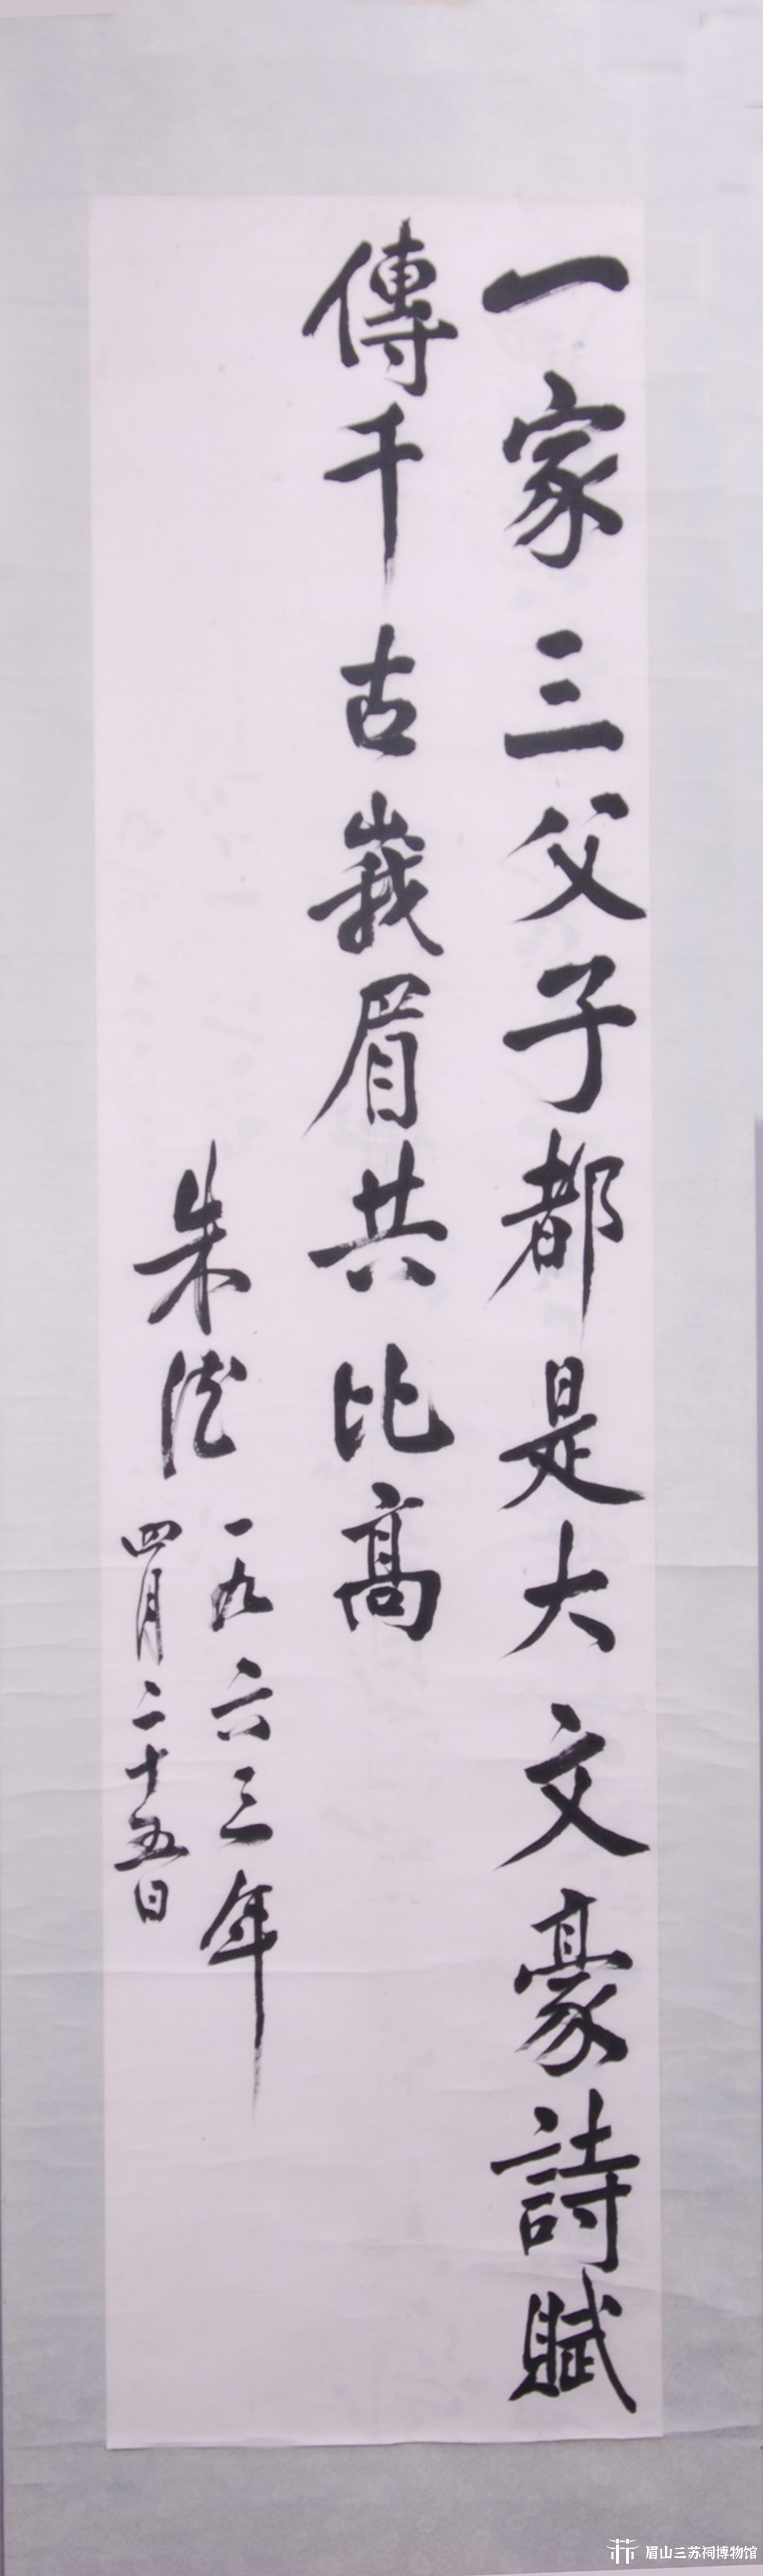 一家三父子都是大文豪詩賦
傳千古峩眉共比高
朱德
一九六三年
四月二十五日
眉山三苏祠博物馆